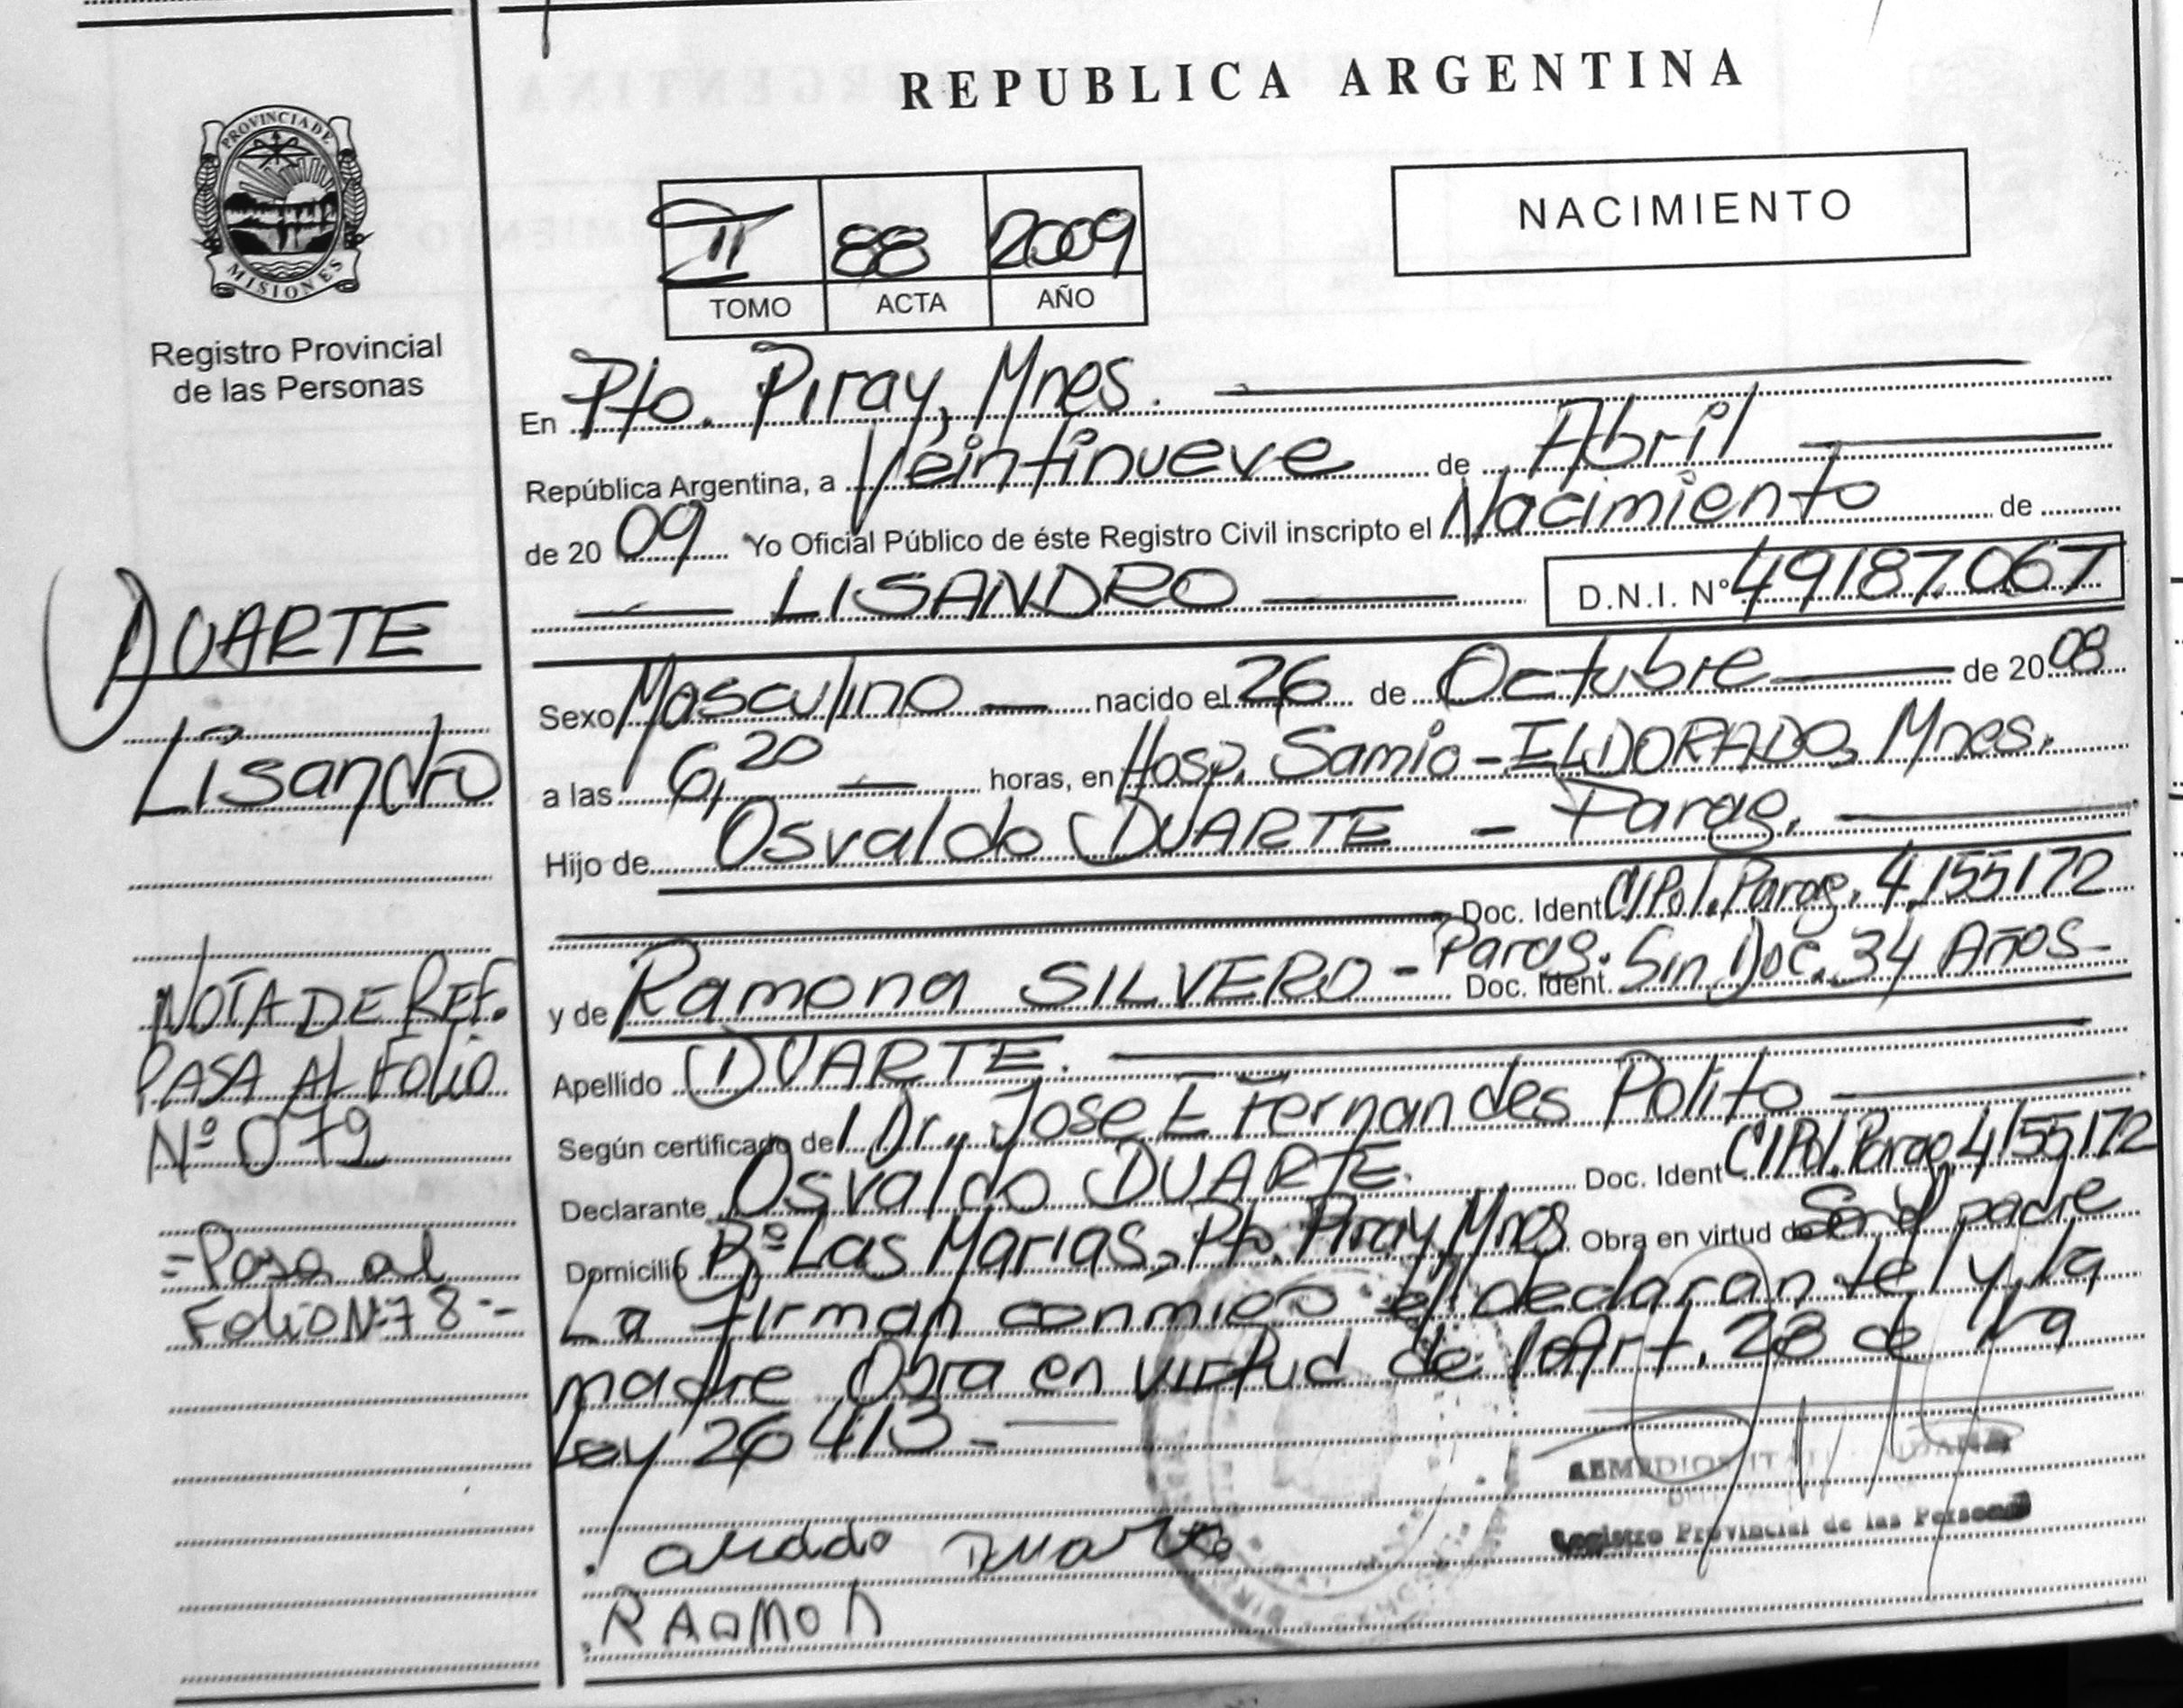 REPUBLICA ARGENTINA
PROVINCIA DE
MISIONES
Registro Provincial
de las Personas
NACIMIENTO
II 88 2009
TOMO ACTA AÑO
En Pto. Piray, Mnes.
República Argentina, a Veintinueve de Abril
de 20 09 Yo Oficial Público de éste Registro Civil inscripto el Nacimiento de
LISANDRO D.N.I. Nº 49187.067
DUARTE
Lisandro
Sexo Masculino nacido el 26 de Octubre de 20 08
a las 6,20 horas, en Hosp. Samic - ELDORADO, Mnes.
Hijo de Osvaldo DUARTE - Parag.
Doc. Ident. CI Pol. Parag. 4.155172
y de Ramona SILVERO - Parag. Doc. Ident. Sin Doc. 34 Años
Apellido DUARTE.
Según certificado del Dr. Jose E Fernandes Polito
Declarante Osvaldo DUARTE. Doc. Ident CI Pol. Parag. 4155172
Domicilio Bº Las Marias, Pto. Piray, Mnes Obra en virtud de Ser el padre
La firman conmigo el declarante y la
madre Obra en virtud de l Art. 28 de la
Ley 26413-
NOTA DE REF.
PASA AL FOLIO
Nº 079
= Pasa al
Folio Nº 78 --
Duarte
RAOMON
Registro Provincial de las Personas